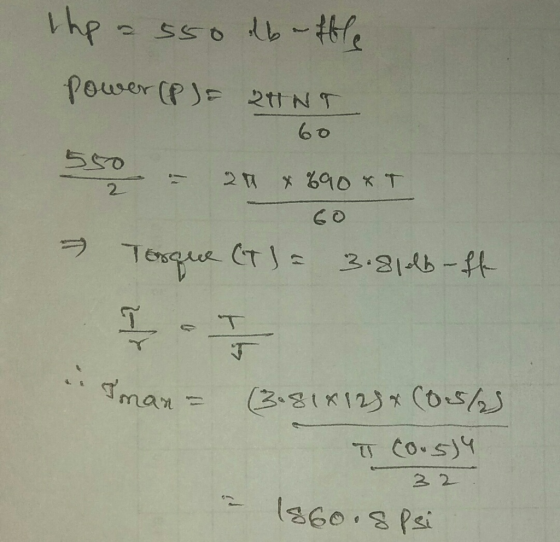 1hp = 550 lb-ft/s
Power(P) = 2πNT/60
550/2 = 2π × 690 × T/60
⇒ Torque (T) = 3.81 lb-ft
τ/r = T/J
∴ τmax = (3.81×12)×(0.5/2)/π(0.5)4/32
= 1860.8 psi